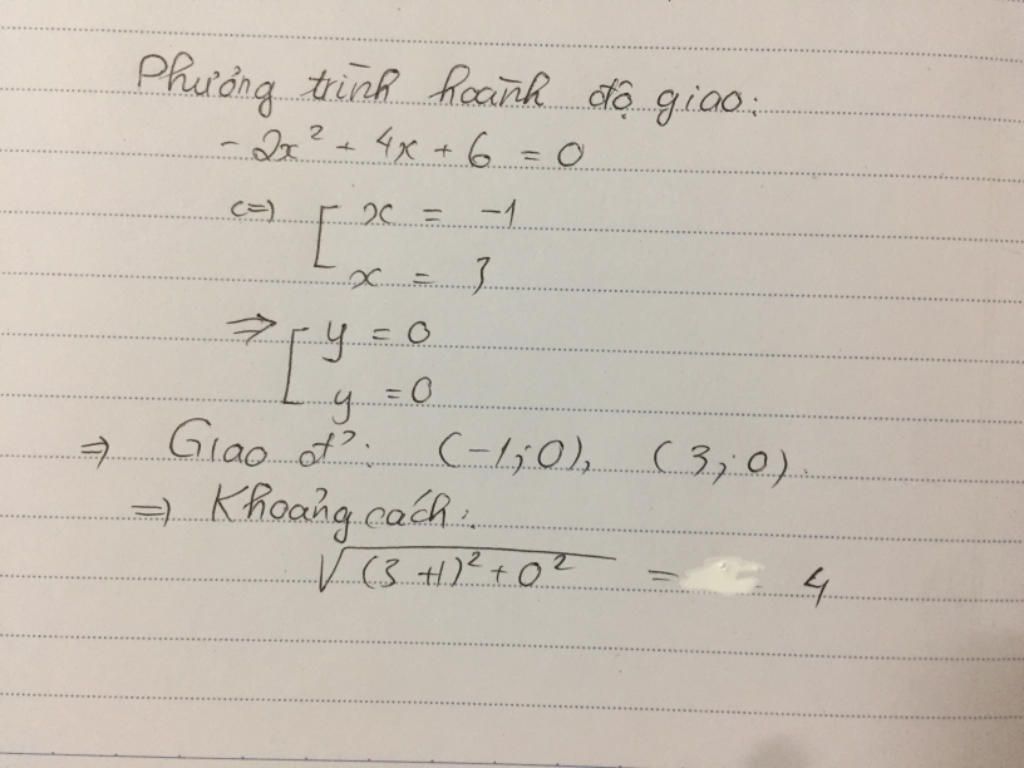 Phương trình hoành độ giao:
-2x² + 4x + 6 = 0
<=> [ x = -1
x = 3
=> [ y = 0
y = 0
=> Giao đ²: (-1;0), (3;0).
=> Khoảng cách:
√(3+1)²+0² = 4